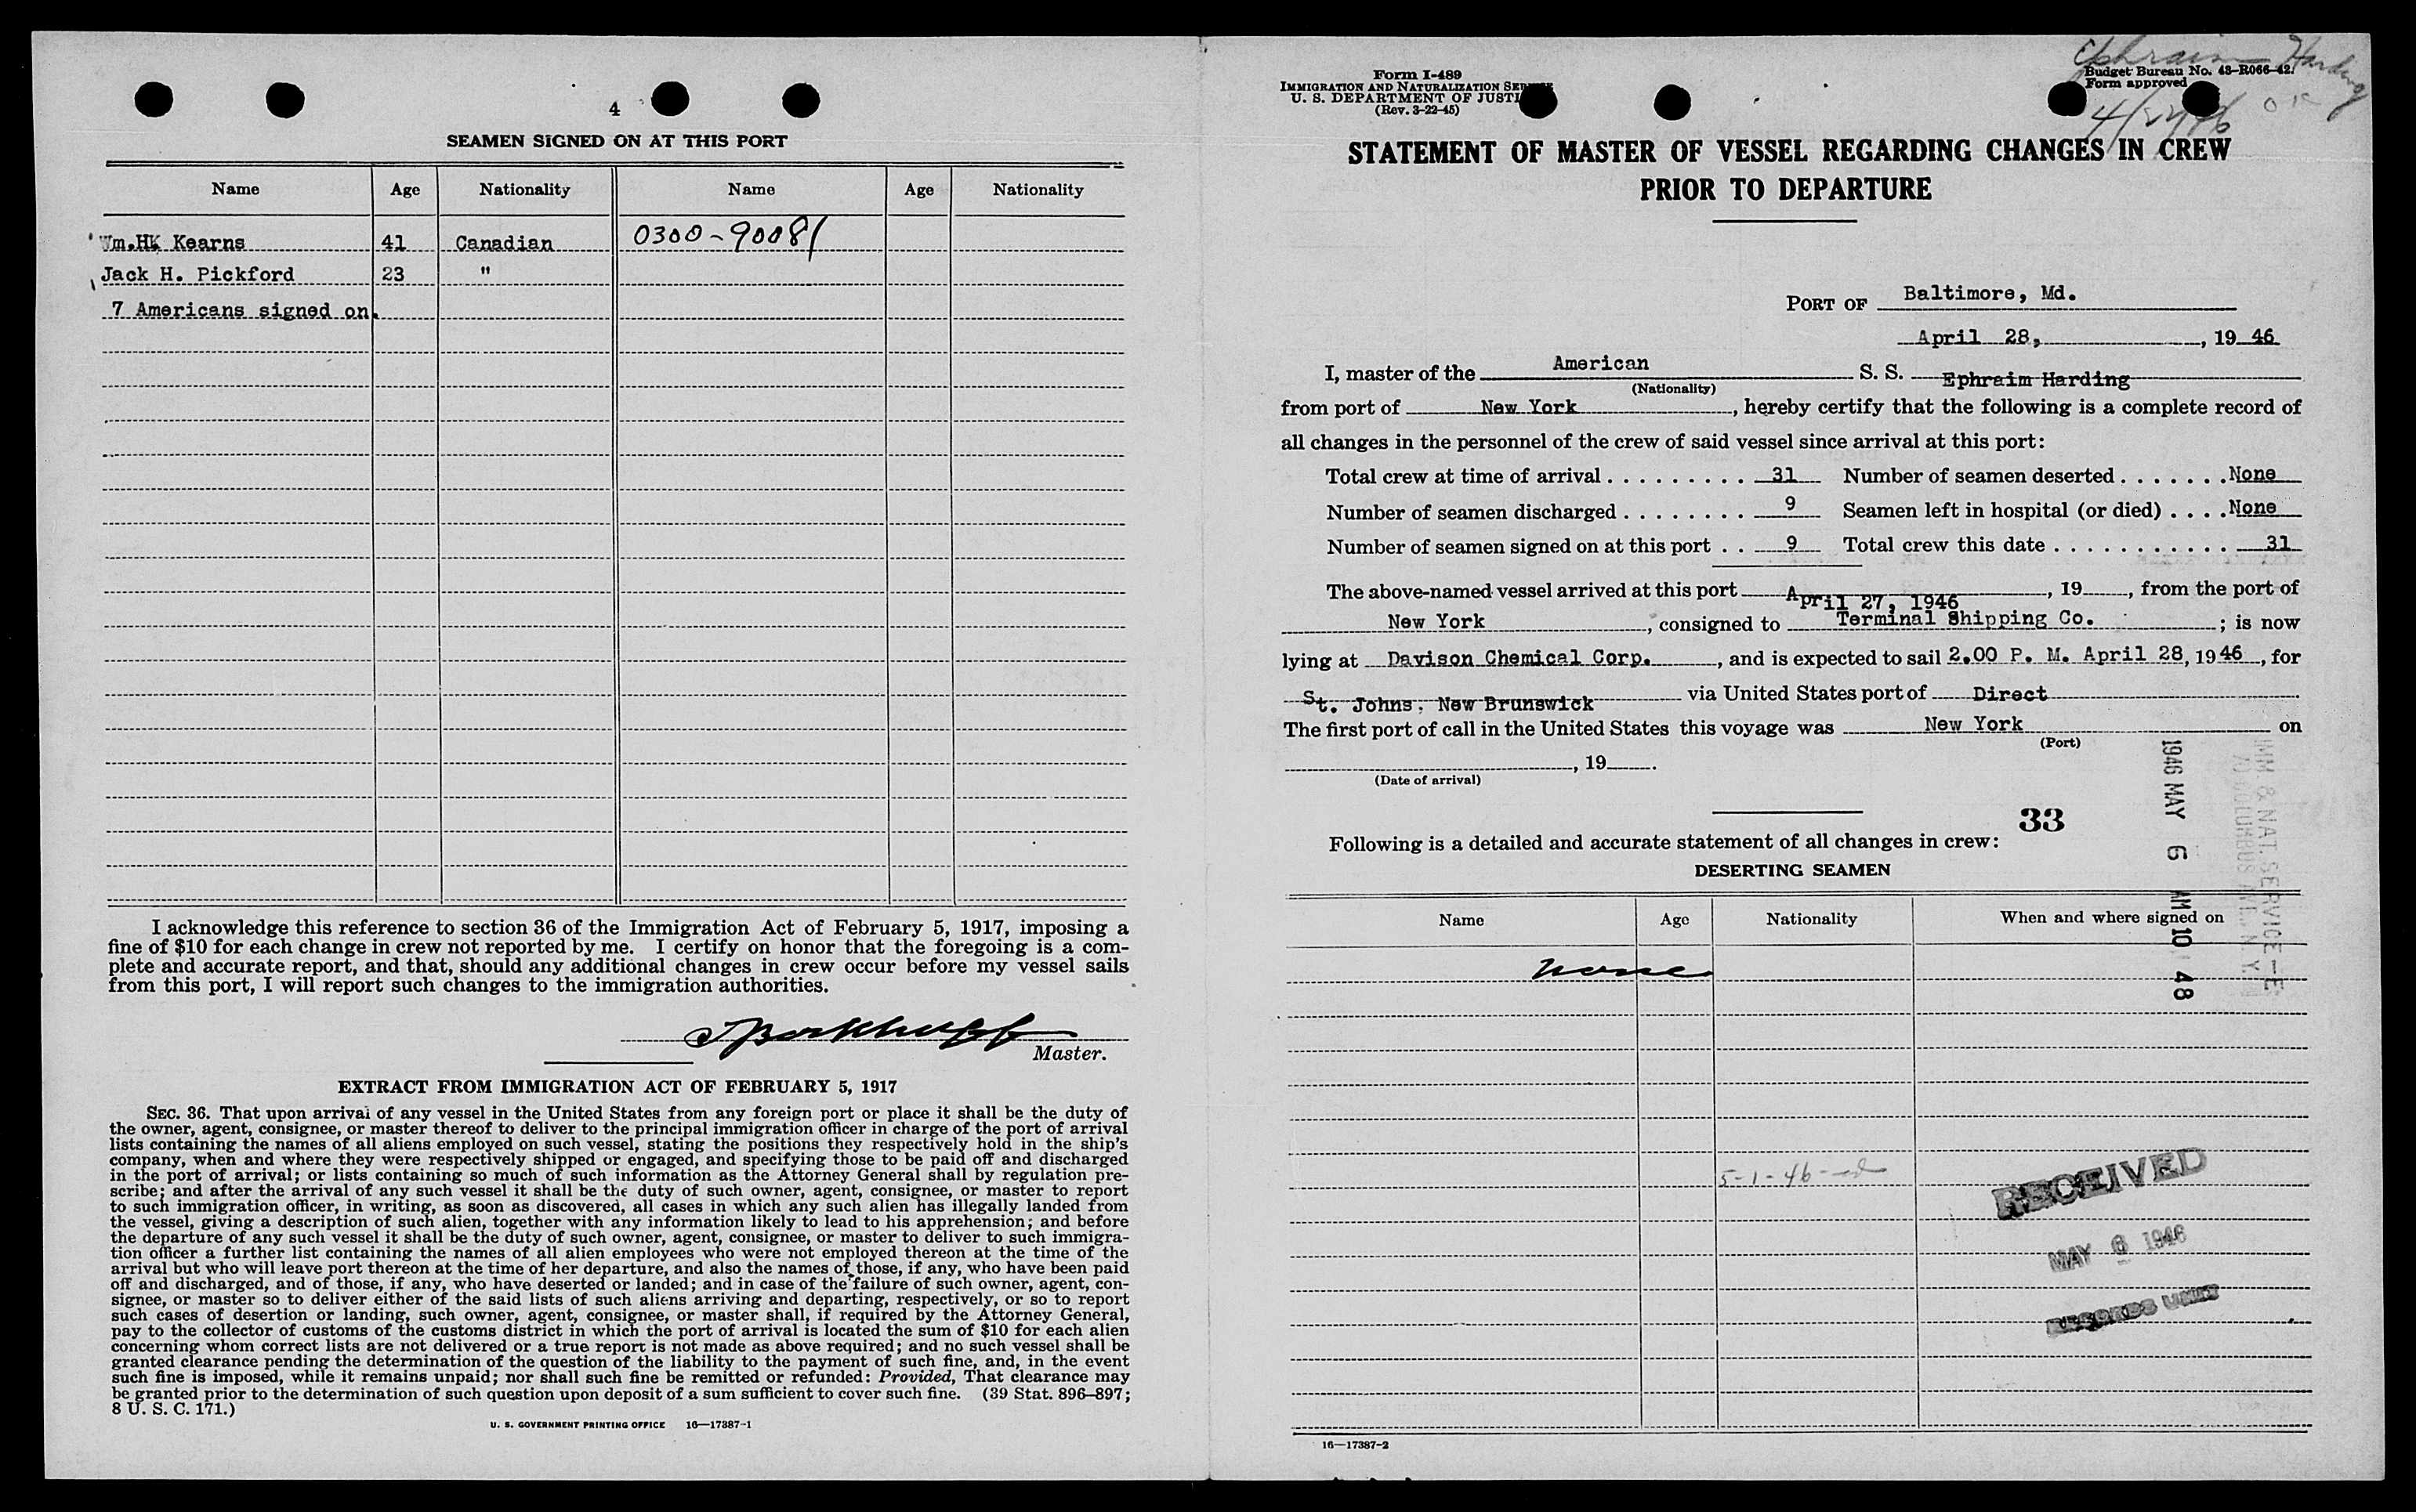 4
SEAMEN SIGNED ON AT THIS PORT
Name Age Nationality Name Age Nationality
Wm.HK Kearns 41 Canadian 0300-90081
Jack H. Pickford 23 "
7 Americans signed on.
I acknowledge this reference to section 36 of the Immigration Act of February 5, 1917, imposing a
fine of $10 for each change in crew not reported by me. I certify on honor that the foregoing is a com-
plete and accurate report, and that, should any additional changes in crew occur before my vessel sails
from this port, I will report such changes to the immigration authorities.
Master.
EXTRACT FROM IMMIGRATION ACT OF FEBRUARY 5, 1917
SEC. 36. That upon arrival of any vessel in the United States from any foreign port or place it shall be the duty of
the owner, agent, consignee, or master thereof to deliver to the principal immigration officer in charge of the port of arrival
lists containing the names of all aliens employed on such vessel, stating the positions they respectively hold in the ship's
company, when and where they were respectively shipped or engaged, and specifying those to be paid off and discharged
in the port of arrival; or lists containing so much of such information as the Attorney General shall by regulation pre-
scribe; and after the arrival of any such vessel it shall be the duty of such owner, agent, consignee, or master to report
to such immigration officer, in writing, as soon as discovered, all cases in which any such alien has illegally landed from
the vessel, giving a description of such alien, together with any information likely to lead to his apprehension; and before
the departure of any such vessel it shall be the duty of such owner, agent, consignee, or master to deliver to such immigra-
tion officer a further list containing the names of all alien employees who were not employed thereon at the time of the
arrival but who will leave port thereon at the time of her departure, and also the names of those, if any, who have been paid
off and discharged, and of those, if any, who have deserted or landed; and in case of the failure of such owner, agent, con-
signee, or master so to deliver either of the said lists of such aliens arriving and departing, respectively, or so to report
such cases of desertion or landing, such owner, agent, consignee, or master shall, if required by the Attorney General,
pay to the collector of customs of the customs district in which the port of arrival is located the sum of $10 for each alien
concerning whom correct lists are not delivered or a true report is not made as above required; and no such vessel shall be
granted clearance pending the determination of the question of the liability to the payment of such fine, and, in the event
such fine is imposed, while it remains unpaid; nor shall such fine be remitted or refunded: Provided, That clearance may
be granted prior to the determination of such question upon deposit of a sum sufficient to cover such fine. (39 Stat. 896–897;
8 U. S. C. 171.)
U. S. GOVERNMENT PRINTING OFFICE 16—17387-1
Ephraim Harding
Form I-489
IMMIGRATION AND NATURALIZATION SERVICE
U. S. DEPARTMENT OF JUSTI
(Rev. 3-22-45)
Budget Bureau No. 43-R066-42.
Form approved
OK
STATEMENT OF MASTER OF VESSEL REGARDING CHANGES IN CREW
PRIOR TO DEPARTURE
PORT OF Baltimore, Md.
April 28, , 19 46
I, master of the American S. S. Ephraim Harding
(Nationality)
from port of New York , hereby certify that the following is a complete record of
all changes in the personnel of the crew of said vessel since arrival at this port:
Total crew at time of arrival . . . . . . . . . 31 Number of seamen deserted . . . . . . . None
Number of seamen discharged . . . . . . . . 9 Seamen left in hospital (or died) . . . . None
Number of seamen signed on at this port . . 9 Total crew this date . . . . . . . . . . . . 31
The above-named vessel arrived at this port April 27, 1946 , 19 , from the port of
New York , consigned to Terminal Shipping Co. ; is now
lying at Davison Chemical Corp. , and is expected to sail 2.00 P. M. April 28, 19 46 , for
St. Johns, New Brunswick via United States port of Direct
The first port of call in the United States this voyage was New York on
(Port)
, 19 .
(Date of arrival)
33
Following is a detailed and accurate statement of all changes in crew:
DESERTING SEAMEN
Name Age Nationality When and where signed on
none
1946 MAY 6 AM 10 48
IMM & NAT. SERVICE
70 COLUMBUS AV., N.Y.
5-1-46
RECEIVED
MAY 6 1946
RECORDS UNIT
16—17387-2